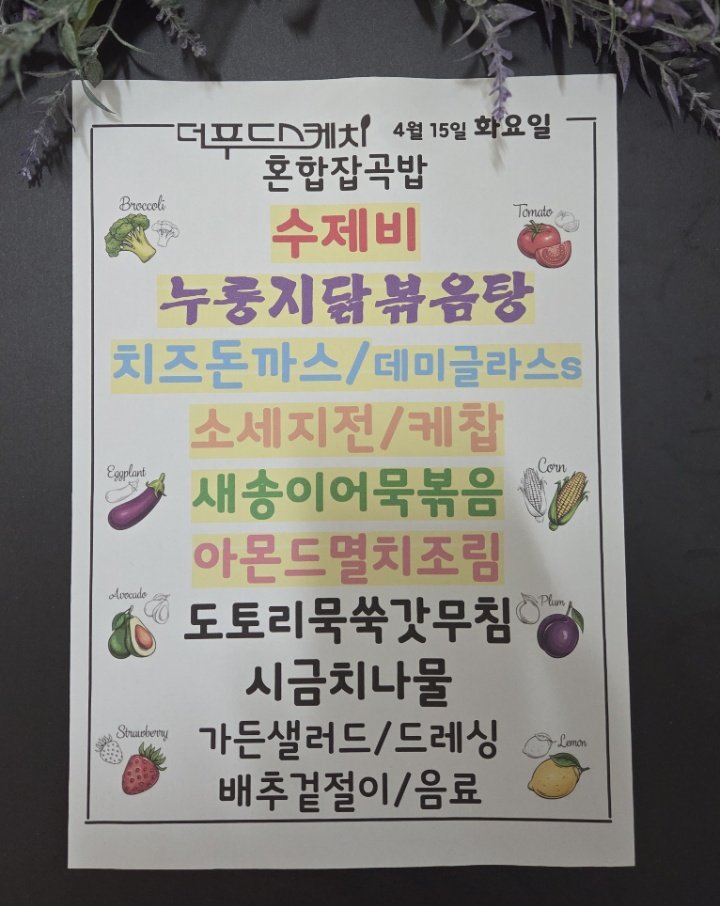 더푸드스케치 4월 15일 화요일
혼합잡곡밥
Broccoli
Tomato
수제비
누룽지닭볶음탕
치즈돈까스/데미글라스s
소세지전/케찹
Eggplant
Corn
새송이어묵볶음
아몬드멸치조림
Avocado
Plum
도토리묵쑥갓무침
시금치나물
Strawberry
Lemon
가든샐러드/드레싱
배추겉절이/음료